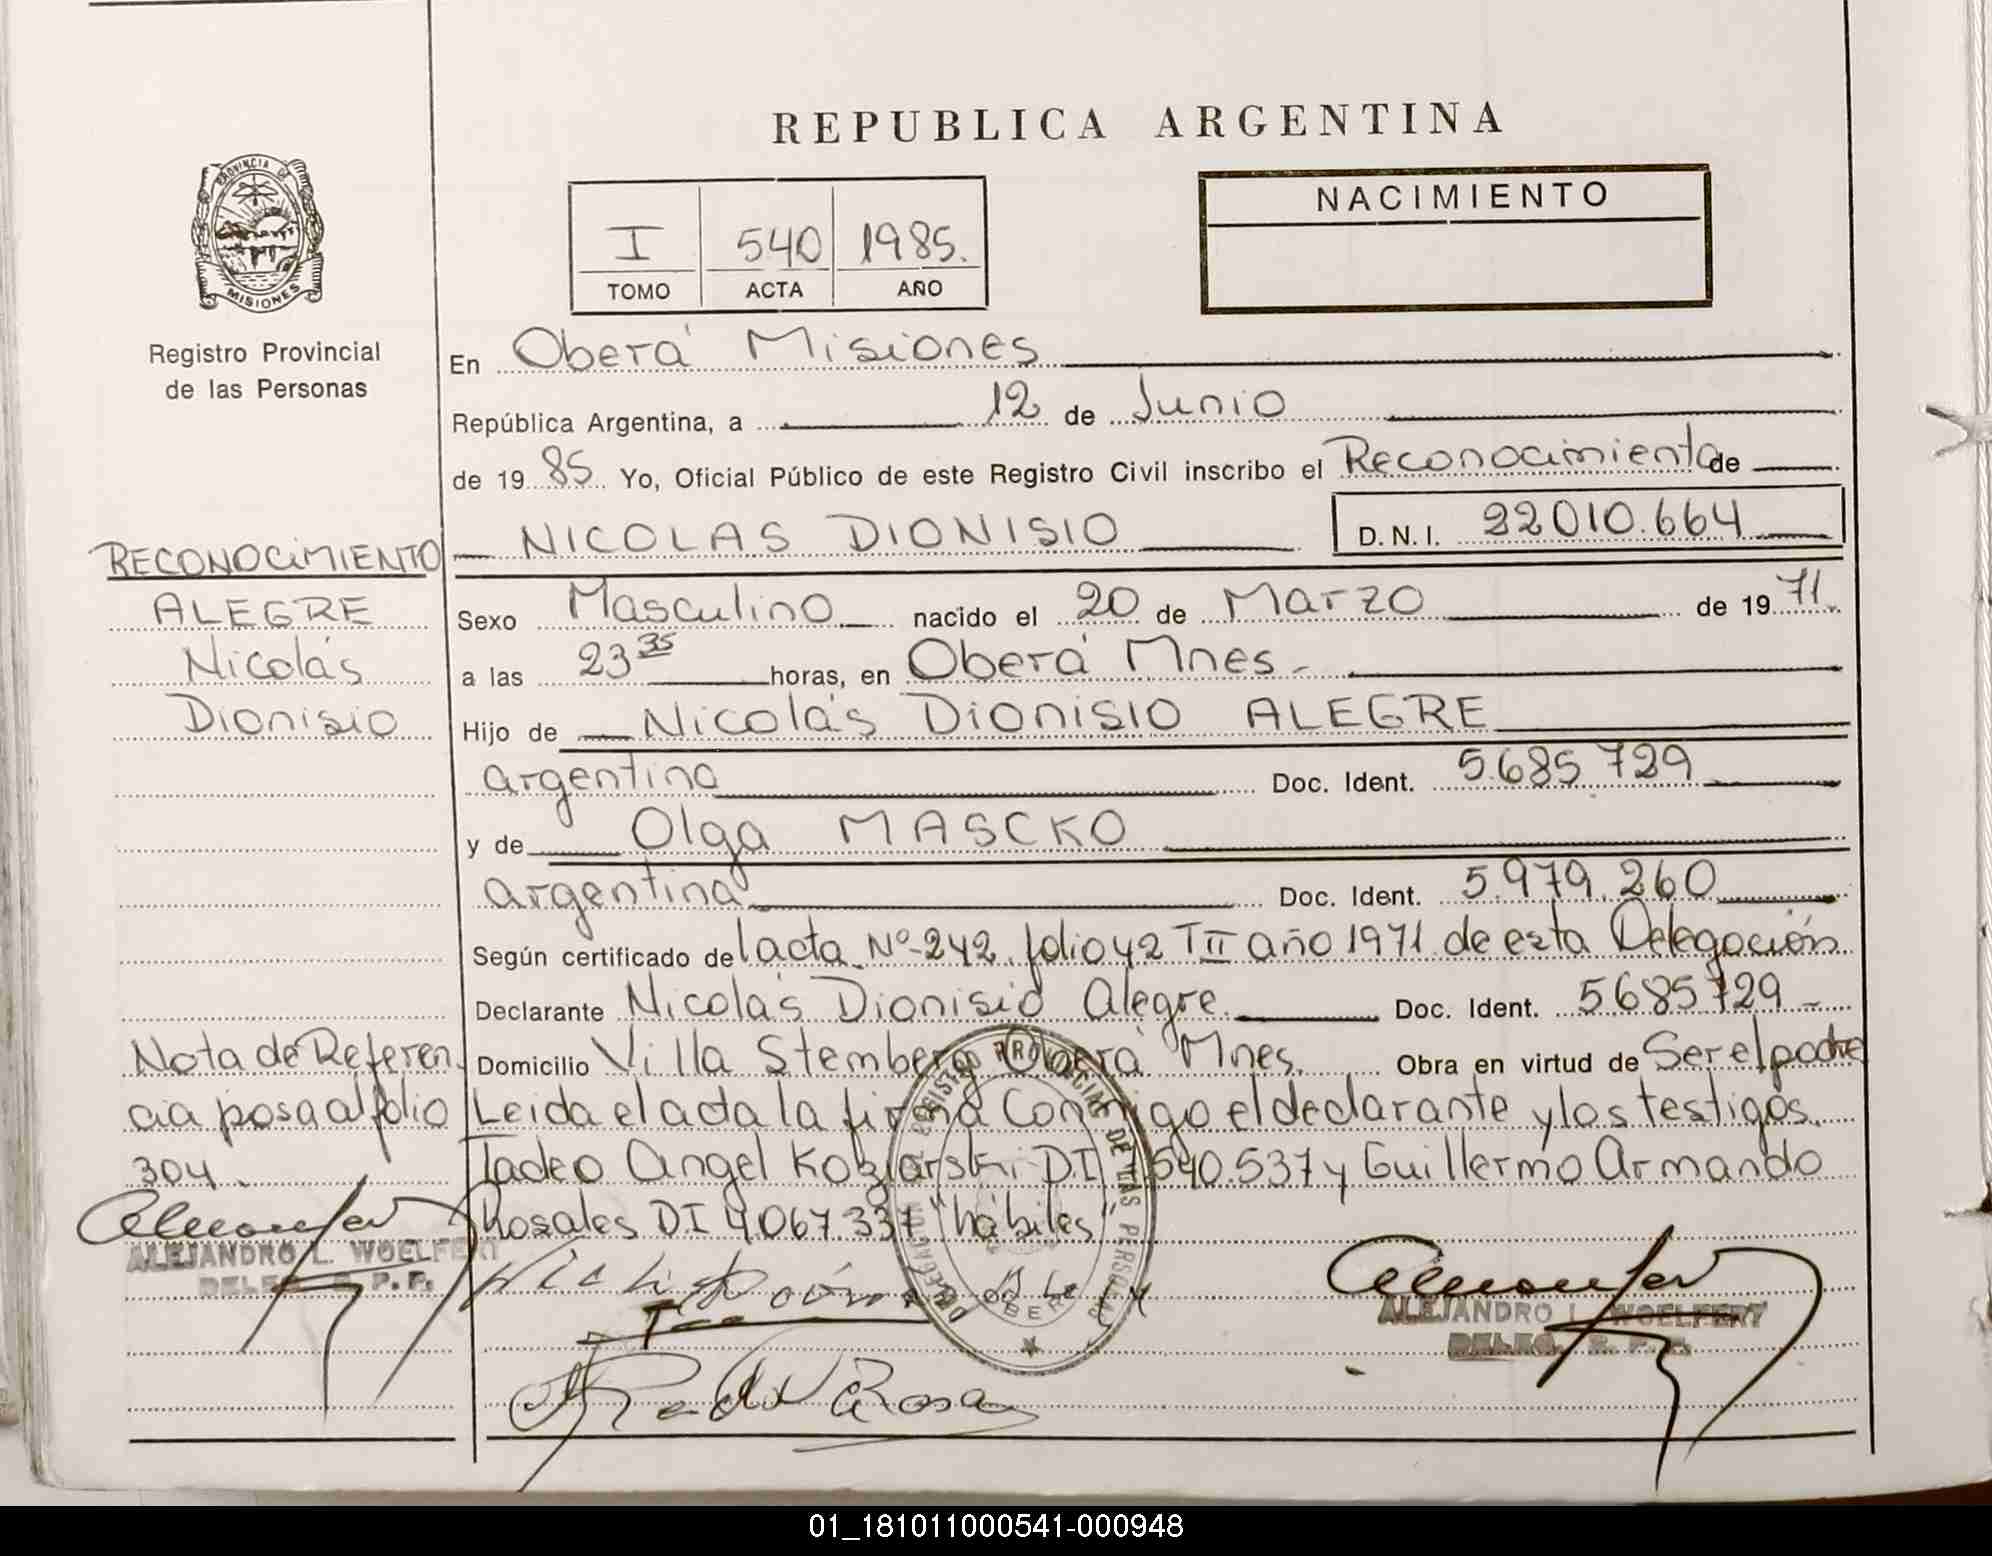 REPUBLICA ARGENTINA
PROVINCIA DE
MISIONES
Registro Provincial
de las Personas
I 540 1985.
TOMO ACTA AÑO
NACIMIENTO
En Oberá Misiones
República Argentina, a 12 de Junio
de 19 85 Yo, Oficial Público de este Registro Civil inscribo el Reconocimiento de
NICOLAS DIONISIO D.N.I. 22010.664
RECONOCIMIENTO
ALEGRE
Nicolás
Dionisio
Sexo Masculino nacido el 20 de Marzo de 19 71
a las 23 35 horas, en Oberá Mnes.
Hijo de Nicolás Dionisio ALEGRE
argentino Doc. Ident. 5.685.729
y de Olga MASCKO
argentina Doc. Ident. 5.979.260
Según certificado del acta Nº 242 folio 42 T II año 1971 de esta Delegación
Declarante Nicolás Dionisio Alegre Doc. Ident. 5685729
Domicilio Villa Stemberg Oberá Mnes. Obra en virtud de Ser el padre
Leida el acta la firma Conmigo el declarante y los testigos
Tadeo Angel Koziarski D.I 1540.537 y Guillermo Armando
Rosales D.I 4.067.337 "hábiles"
Nota de Referen
cia pasa al folio
304.
ALEJANDRO L. WOELFERT
DELEG. R. P. P.
REGISTRO PROVINCIAL DE LAS PERSONAS
ALEJANDRO L. WOELFERT
DELEG. R. P. P.
01_181011000541-000948